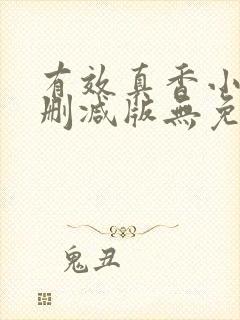 有效真香小
删减版無免
鬼丑